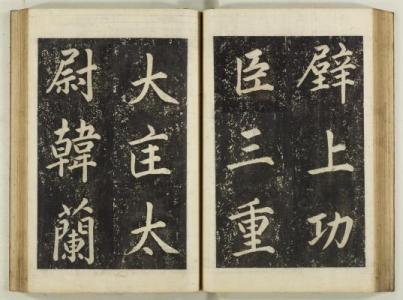 壁上功
臣三重
大匡太
尉韓蘭